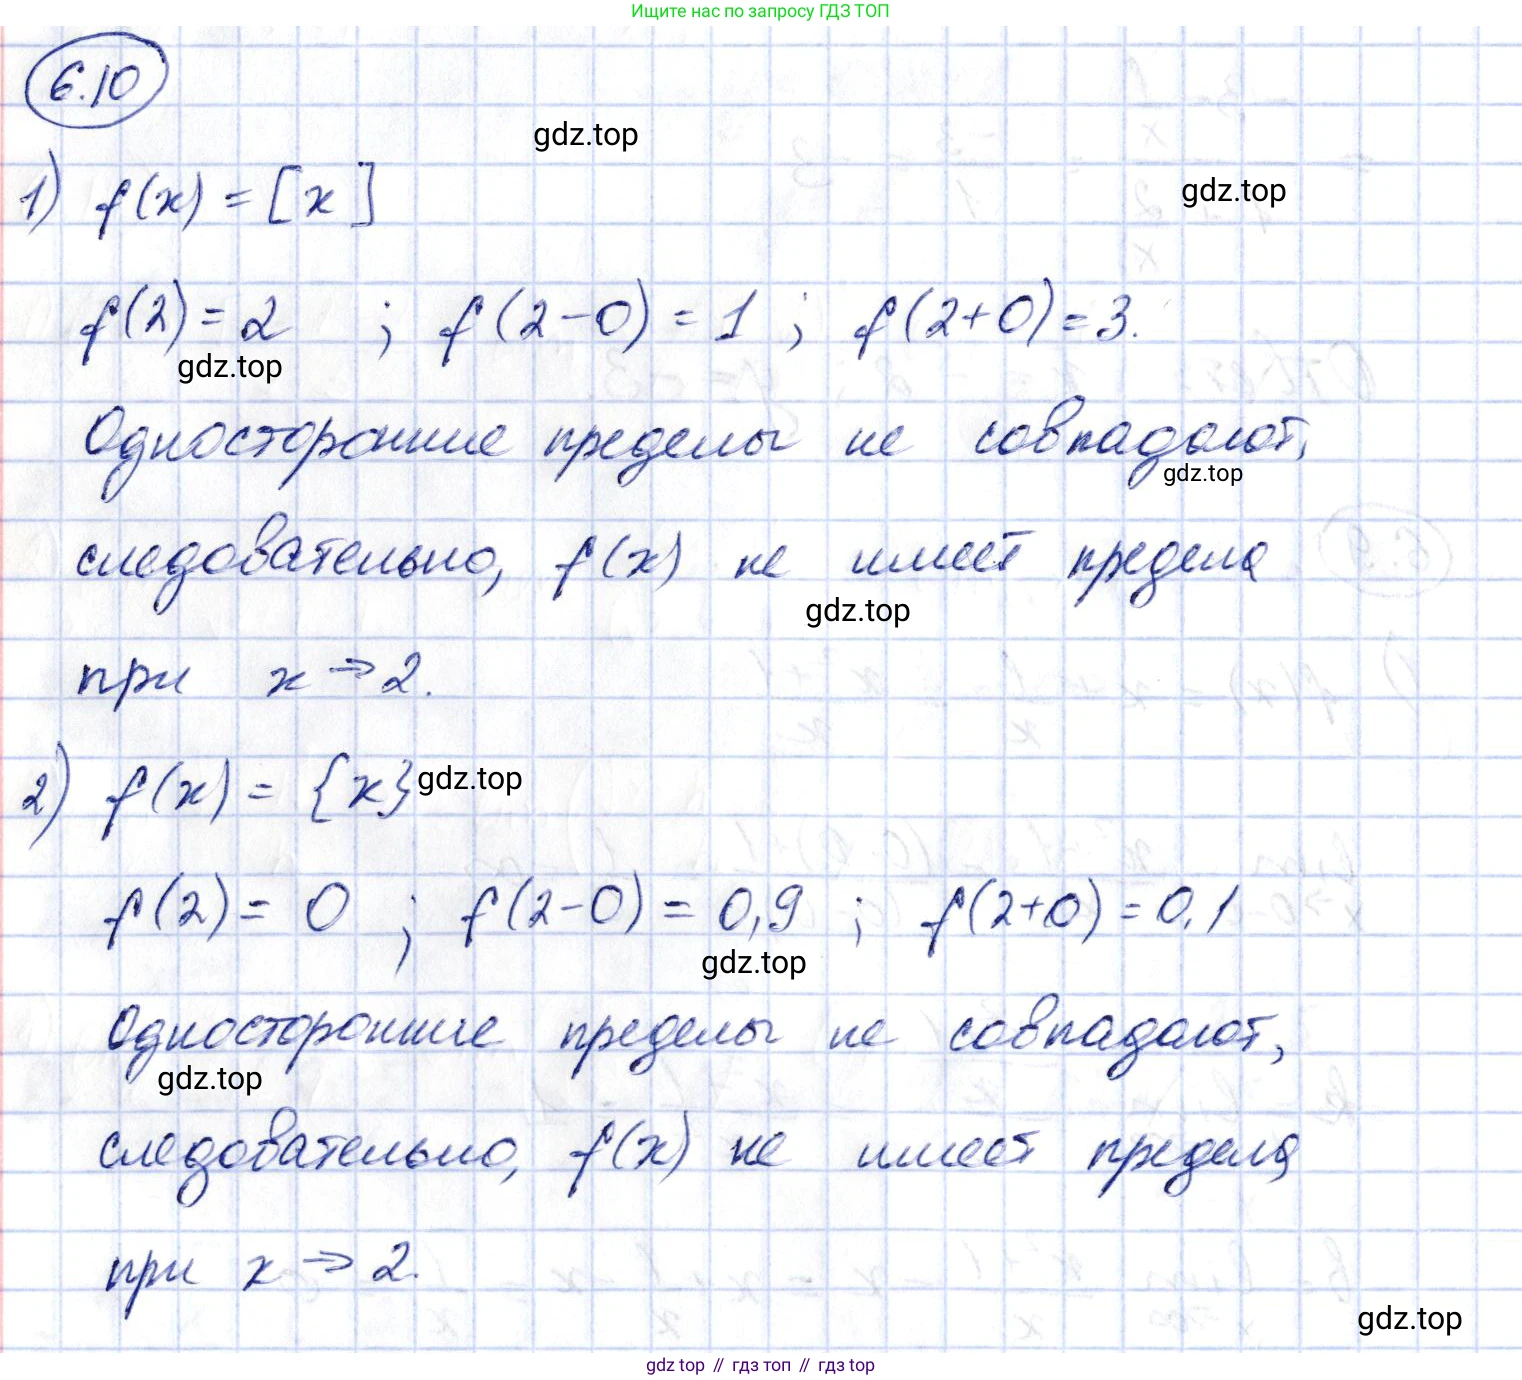 Ищите нас по запросу ГДЗ ТОП
6.10
gdz.top
1) f(x) = [x]
gdz.top
f(2) = 2 ; f(2-0) = 1 ; f(2+0) = 3.
gdz.top
Односторонние пределы не совпадают,
gdz.top
следовательно, f(x) не имеет предела
gdz.top
при x → 2.
2) f(x) = {x}
gdz.top
f(2) = 0 ; f(2-0) = 0,9 ; f(2+0) = 0,1
gdz.top
Односторонние пределы не совпадают,
gdz.top
следовательно, f(x) не имеет предела
при x → 2.
gdz.top
gdz top // гдз топ // гдз top